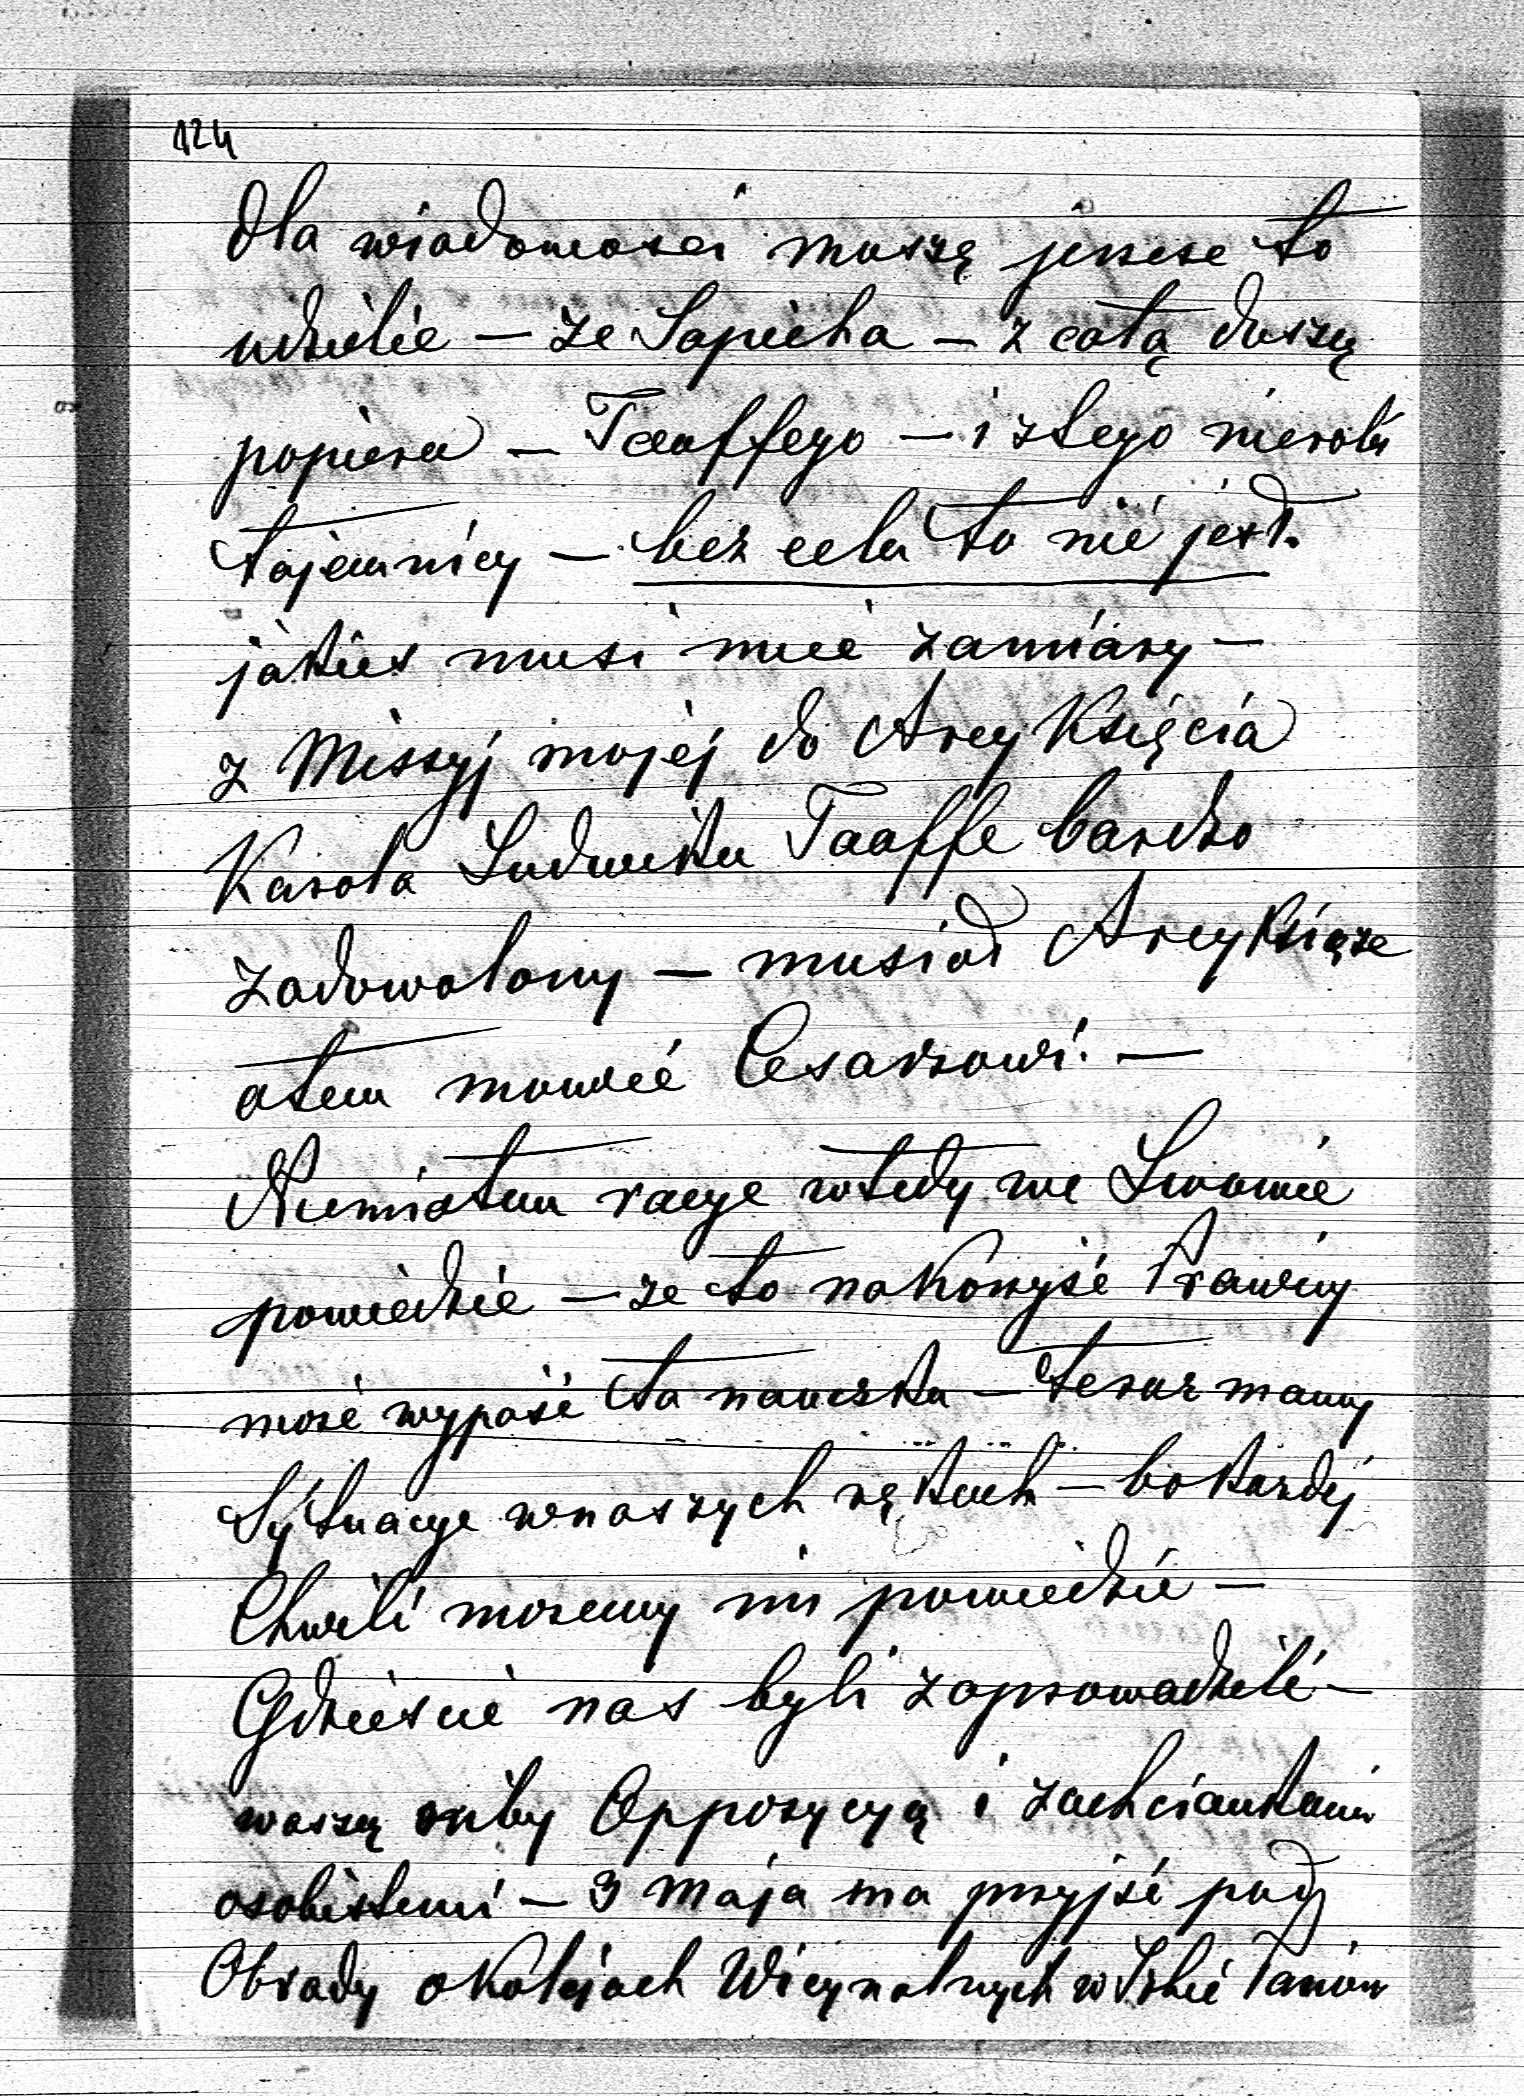 124
dla wiadomosci muszę jeszcze to
udzielić – że Sapieha – z całą duszą
popiera – Taaffego – i ztego nierobi
tajemnicy – bez celu to nié jest.
jakies musi mieć zamiary –
z Missyj mojéj do ArcyKsięcia
Karola Ludwika Taaffe bardzo
zadowolony – musiał ArcyKsiąże
otem mowić Cesarzowi. –
Niemiałem racye wtedy we Lwowie
powiedzieć – ze to na Korzyść Prawicy
może wypaść ta nauczka – teraz mamy
Sytuacye wnaszych rękach – bo Kazdéj
Chwili mozemy im powiedzieć –
Gdzieście nas byli zaprowadzili –
waszą niby Oppozycyą i zachciankami
osobistemi – 3 Maja ma przyjść pod
Obrady oKolejach Wicynalnych w Izbie Panów